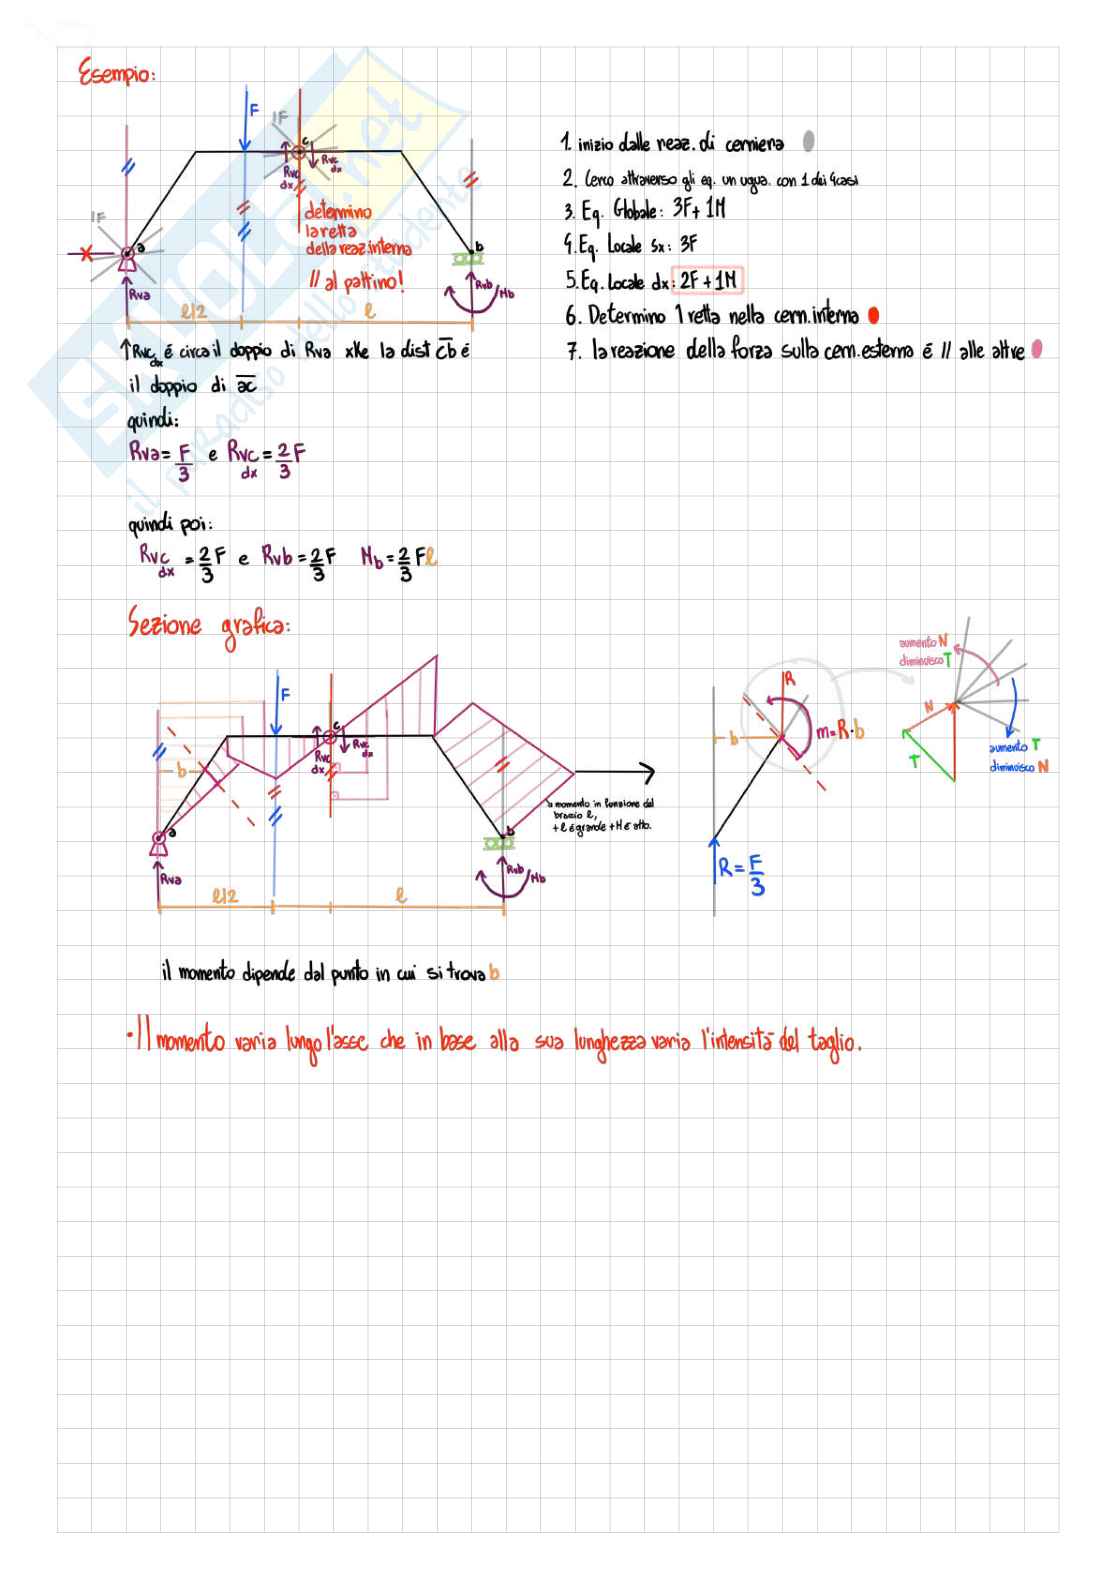 Esempio:
F
1F
c
Rvc
dx
Rvc
dx
1F
a
b
determino
la retta
della reaz.interna
// al pattino!
Rva
Rvb
Mb
l/2
l
1. inizio dalle reaz. di cerniera
2. Cerco attraverso gli eq. un ugua. con 1 dei 4casi
3. Eq. Globale: 3F+ 1M
4. Eq. Locale sx: 3F
5. Eq. Locale dx: 2F + 1M
6. Determino 1 retta nella cern.interna
7. la reazione della forza sulla cern.esterna é // alle altre
↑Rvc dx é circa il doppio di Rva xke la dist cb é
il doppio di ac
quindi:
Rva = F/3 e Rvc dx = 2/3 F
quindi poi:
Rvc dx = 2/3 F e Rvb = 2/3 F Mb = 2/3 Fl
Sezione grafica:
F
c
Rvc
dx
Rvc
dx
b
a
b
Rva
Rvb
Mb
l/2
l
momento in funzione del
braccio l,
+ l é grande + M é alto.
R
b
m=R·b
R = F/3
aumento N
diminuisco T
N
T
aumento T
diminuisco N
il momento dipende dal punto in cui si trova b
·Il momento varia lungo l'asse che in base alla sua lunghezza varia l'intensitá del taglio.
SKUOLA.net
il paradiso dello studente